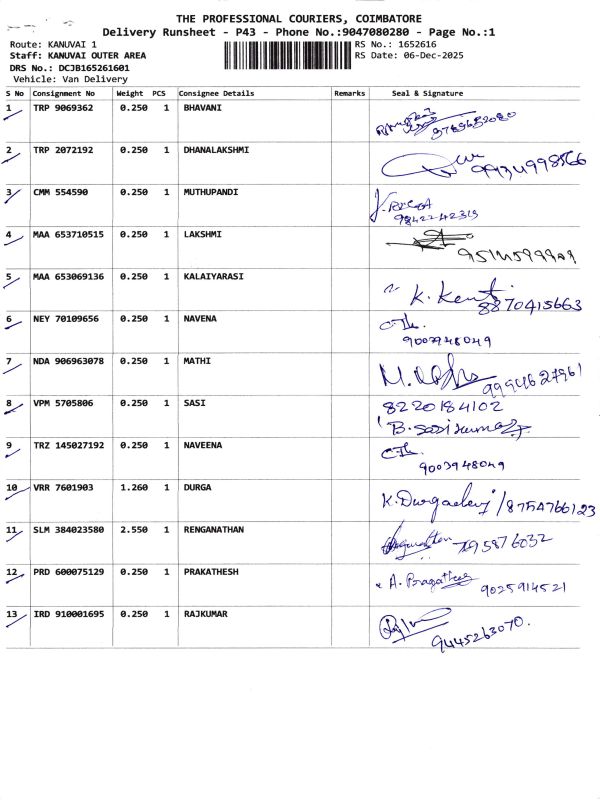 THE PROFESSIONAL COURIERS, COIMBATORE
Delivery Runsheet - P43 - Phone No.:9047080280 - Page No.:1
Route: KANUVAI 1
RS No.: 1652616
Staff: KANUVAI OUTER AREA
RS Date: 06-Dec-2025
DRS No.: DCJB165261601
Vehicle: Van Delivery
S No Consignment No Weight PCS Consignee Details Remarks Seal & Signature
1 TRP 9069362 0.250 1 BHAVANI
2 TRP 2072192 0.250 1 DHANALAKSHMI
3 CMM 554590 0.250 1 MUTHUPANDI
9842242313
4 MAA 653710515 0.250 1 LAKSHMI
5 MAA 653069136 0.250 1 KALAIYARASI
8870415663
6 NEY 70109656 0.250 1 NAVENA
9003948049
7 NDA 906963078 0.250 1 MATHI
9994627961
8 VPM 5705806 0.250 1 SASI 8220184102
B. Sasikumar
9 TRZ 145027192 0.250 1 NAVEENA
9003948049
10 VRR 7601903 1.260 1 DURGA
K. Durgadevi / 8754766123
11 SLM 384023580 2.550 1 RENGANATHAN
12 PRD 600075129 0.250 1 PRAKATHESH
A. Pragathees 9025914521
13 IRD 910001695 0.250 1 RAJKUMAR
9445263070.